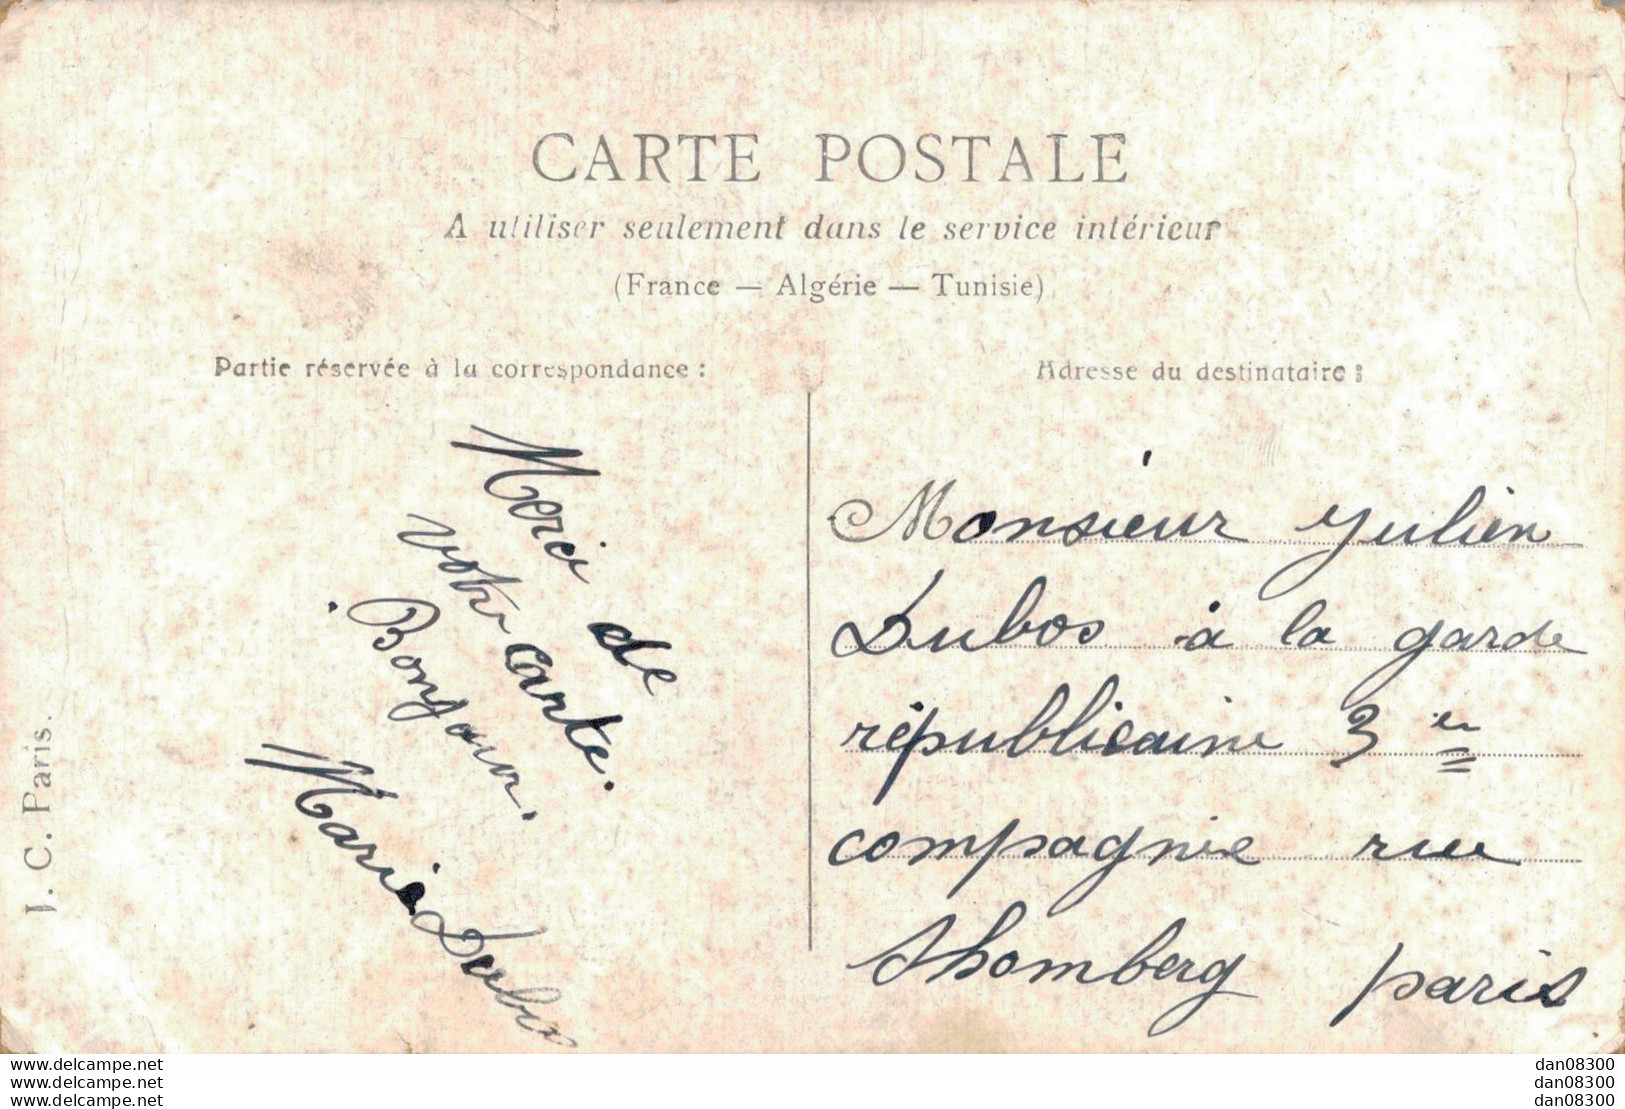 CARTE POSTALE
A utiliser seulement dans le service intérieur
(France — Algérie — Tunisie)
Partie réservée à la correspondance :
Merci de
votre carte.
Bonjour.
Marie Dubos
J. C. Paris.
Adresse du destinataire :
Monsieur Julien
Dubos à la garde
républicaine 3
compagnie rue
Shomberg paris
www.delcampe.net
www.delcampe.net
www.delcampe.net
dan08300
dan08300
dan08300